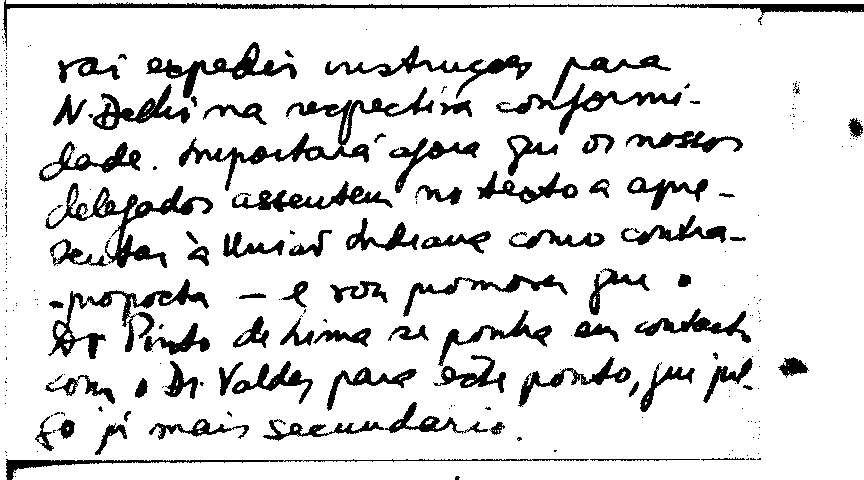 vai expedir instruções para
N. Delhi na respectiva conformi-
dade. Importará agora que os nossos
delegados assentem no texto a apre-
sentar à União Indiana como contra-
-proposta — e vou promover que o
Dr Pinto de Lima se ponha em contacto
com o Dr. Valdez para este ponto, que jul-
go já mais secundario.